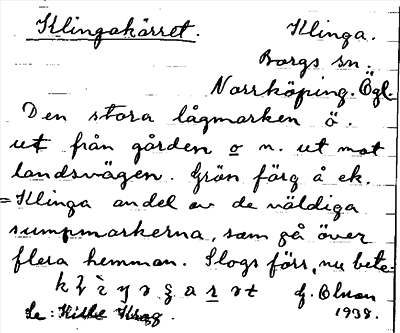 Klingakärret. Klinga.
Borgs sn.
Norrköping. Ögl.
Den stora lågmarken ö.
ut från gården o n. ut mot
landsvägen. Grön färg å ek.
= Klinga andel av de väldiga
sumpmarkerna, som gå över
flera hemman. Slogs förr, nu bete-
G. Olson
Se:
1938.